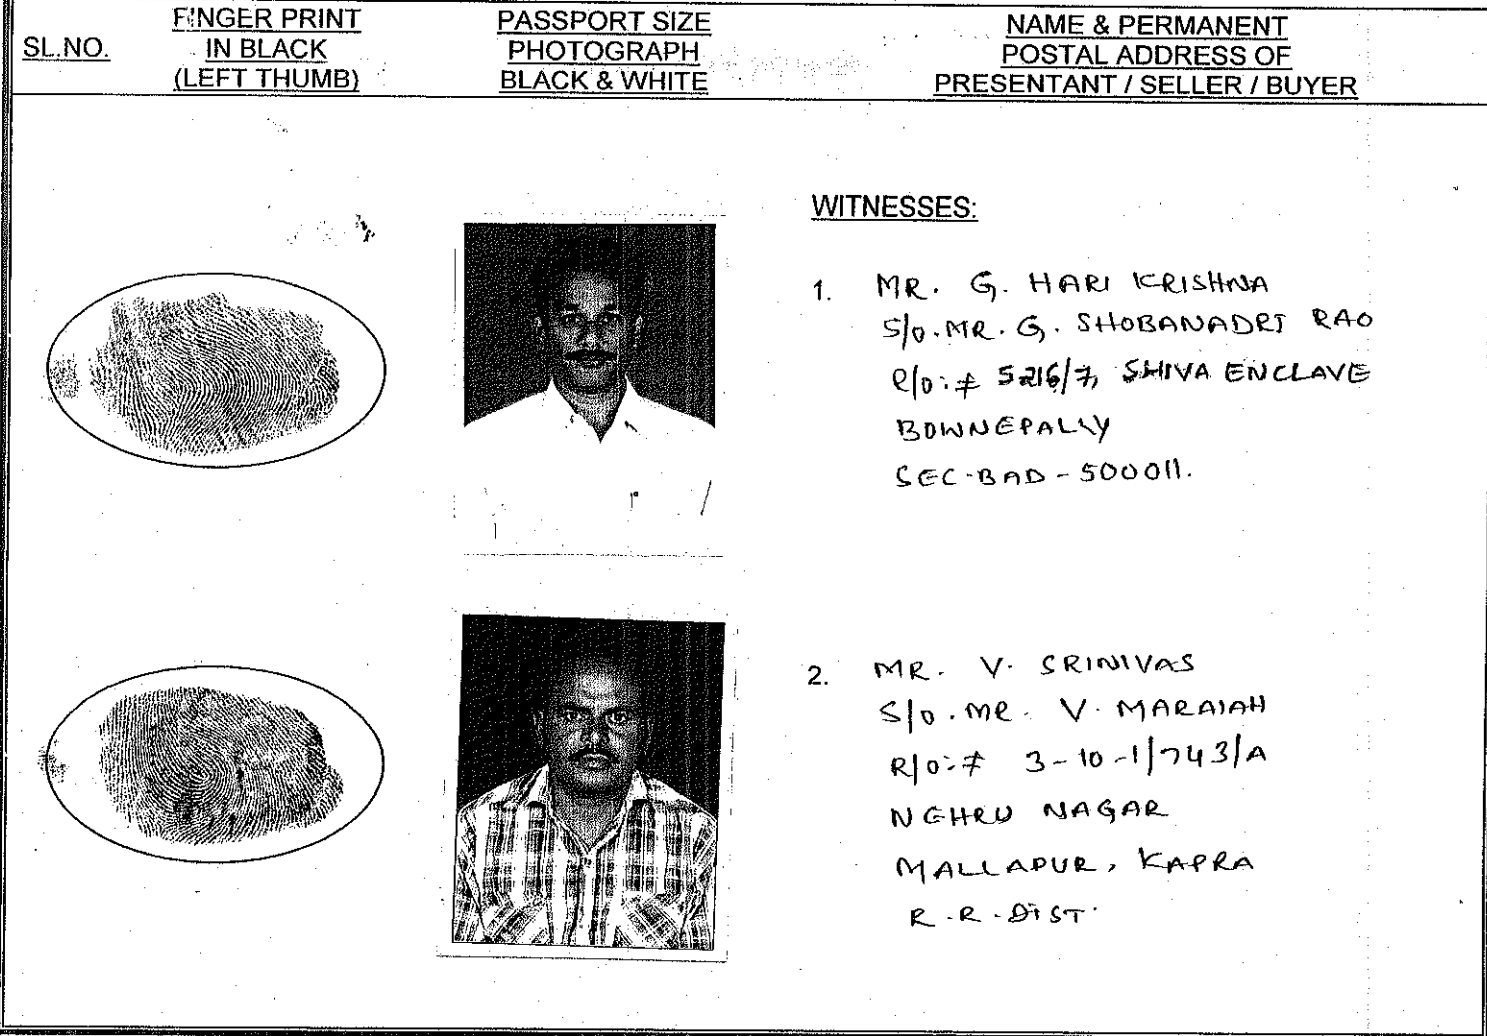 SL.NO.
FINGER PRINT
IN BLACK
(LEFT THUMB)
PASSPORT SIZE
PHOTOGRAPH
BLACK & WHITE
NAME & PERMANENT
POSTAL ADDRESS OF
PRESENTANT / SELLER / BUYER
WITNESSES:
1. MR. G. HARI KRISHNA
S/o. MR. G. SHOBANADRI RAO
R/o: # 5216/7, SHIVA ENCLAVE
BOWNEPALLY
SEC-BAD - 500011.
2. MR. V. SRINIVAS
S/o. MR. V. MARAIAH
R/o: # 3-10-1/743/A
NEHRU NAGAR
MALLAPUR, KAPRA
R.R. DIST.